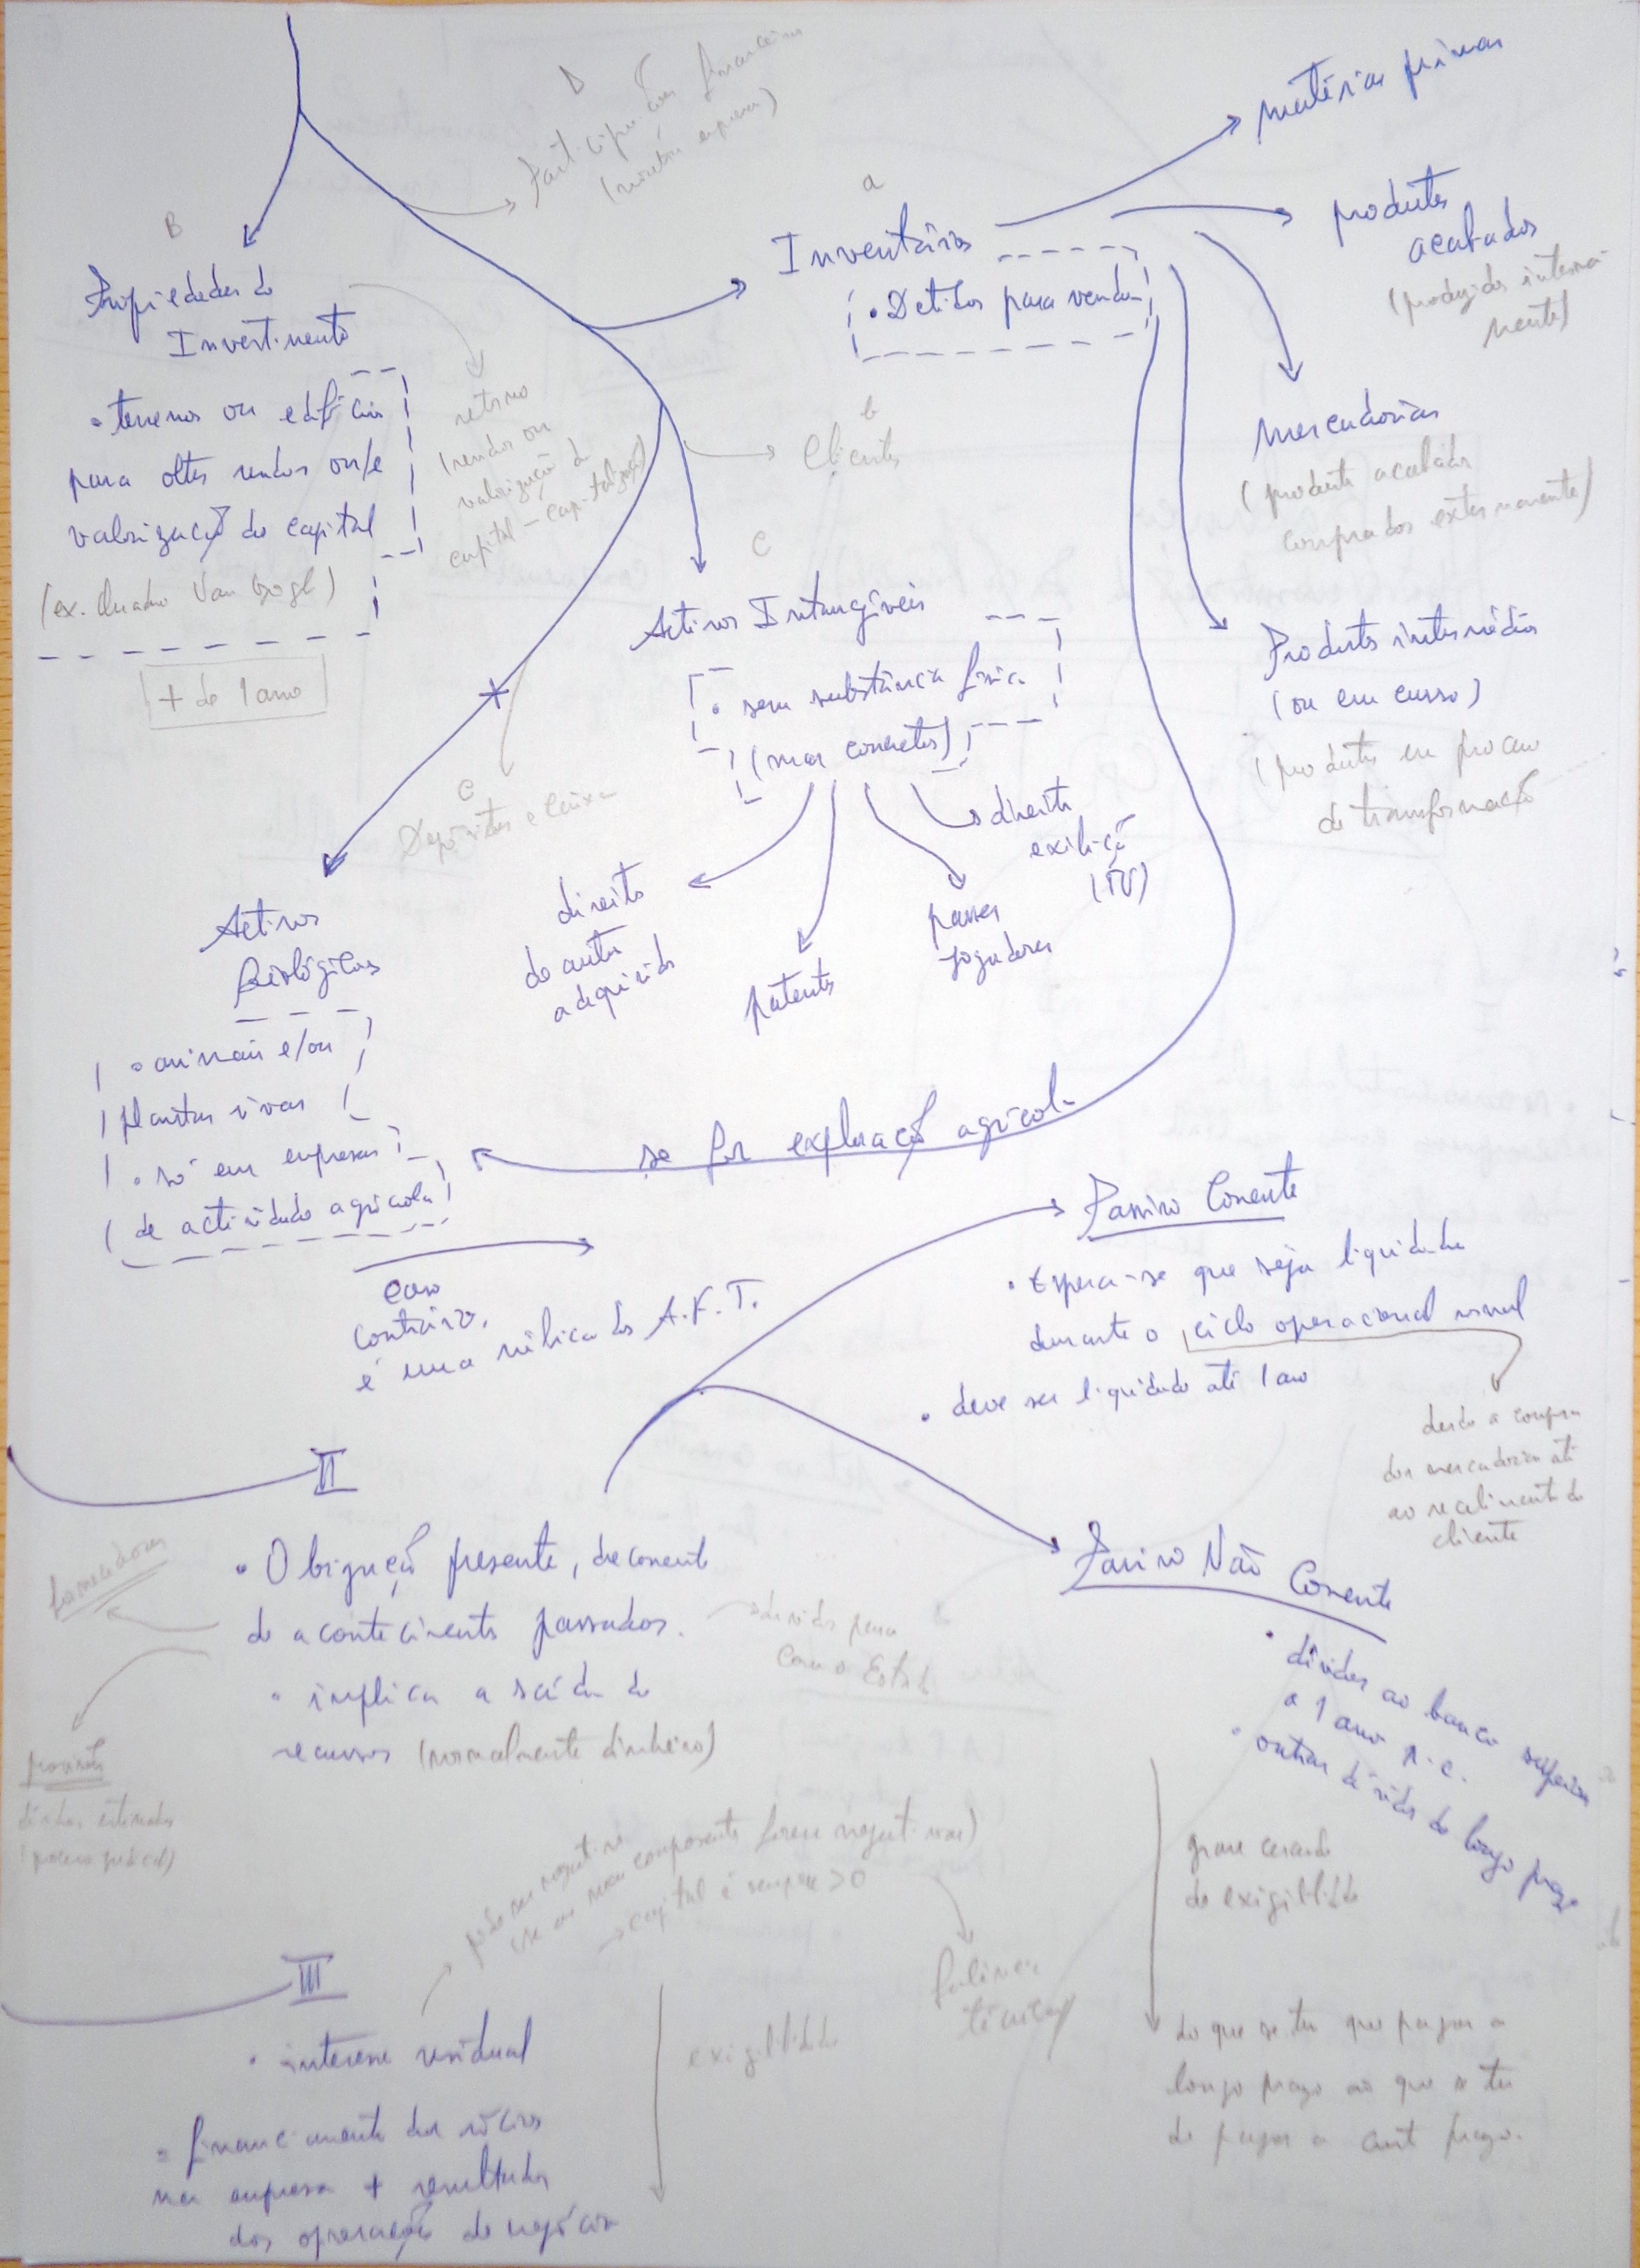 D
Participações financeiras
(noutra empresa)
matérias primas
a
Inventários
• Detidos para venda
produtos
acabados
(produzidos interna-
mente)
B
Propiedades de
Investimento
• terrenos ou edifícios
para obter rendas ou/e
valorização do capital
(ex. Quadro Van Gogh)
+ de 1 ano
retorno
(rendas ou
valorização de
capital - capitalização)
b
Clientes
mercadorias
(produtos acabados
comprados externamente)
c
Activos Intangíveis
• sem substância física
(mas concretos)
Produtos intermédios
(ou em curso)
(produtos em processo
de transformação
e
Depósitos e Caixa
direito
de autor
adquirido
patentes
passes
jogadores
direitos
exibição
(TV)
Activos
Biológicos
• animais e/ou
plantas vivas
• só em empresas
de actividade agrícola
se for exploração agrícola
caso
contrário,
é uma rúbrica dos A.F.T.
Passivo Corrente
• Espera-se que seja liquidado
durante o ciclo operacional normal
• deve ser liquidado até 1 ano
desde a compra
das mercadorias até
ao recebimento do
cliente
II
• Obrigação presente, decorrente
de acontecimentos passados.
• implica a saída de
recursos (normalmente dinheiro)
fornecedores
dívidas para
com o Estado
provisões
dívidas estimadas
(processo judicial)
Passivo Não Corrente
• dívidas ao banco superior
a 1 ano
• outras dívidas de longo prazo
grau crescente
de exigibilidade
do que se tem que pagar a
longo prazo ao que se tem
de pagar a curto prazo.
pode ser negativo
(se os seus componentes forem negativos)
→ capital é sempre >0
falência
técnica
III
• interesse residual
• financiamento dos sócios
na empresa + resultados
das operações de negócios
exigibilidade